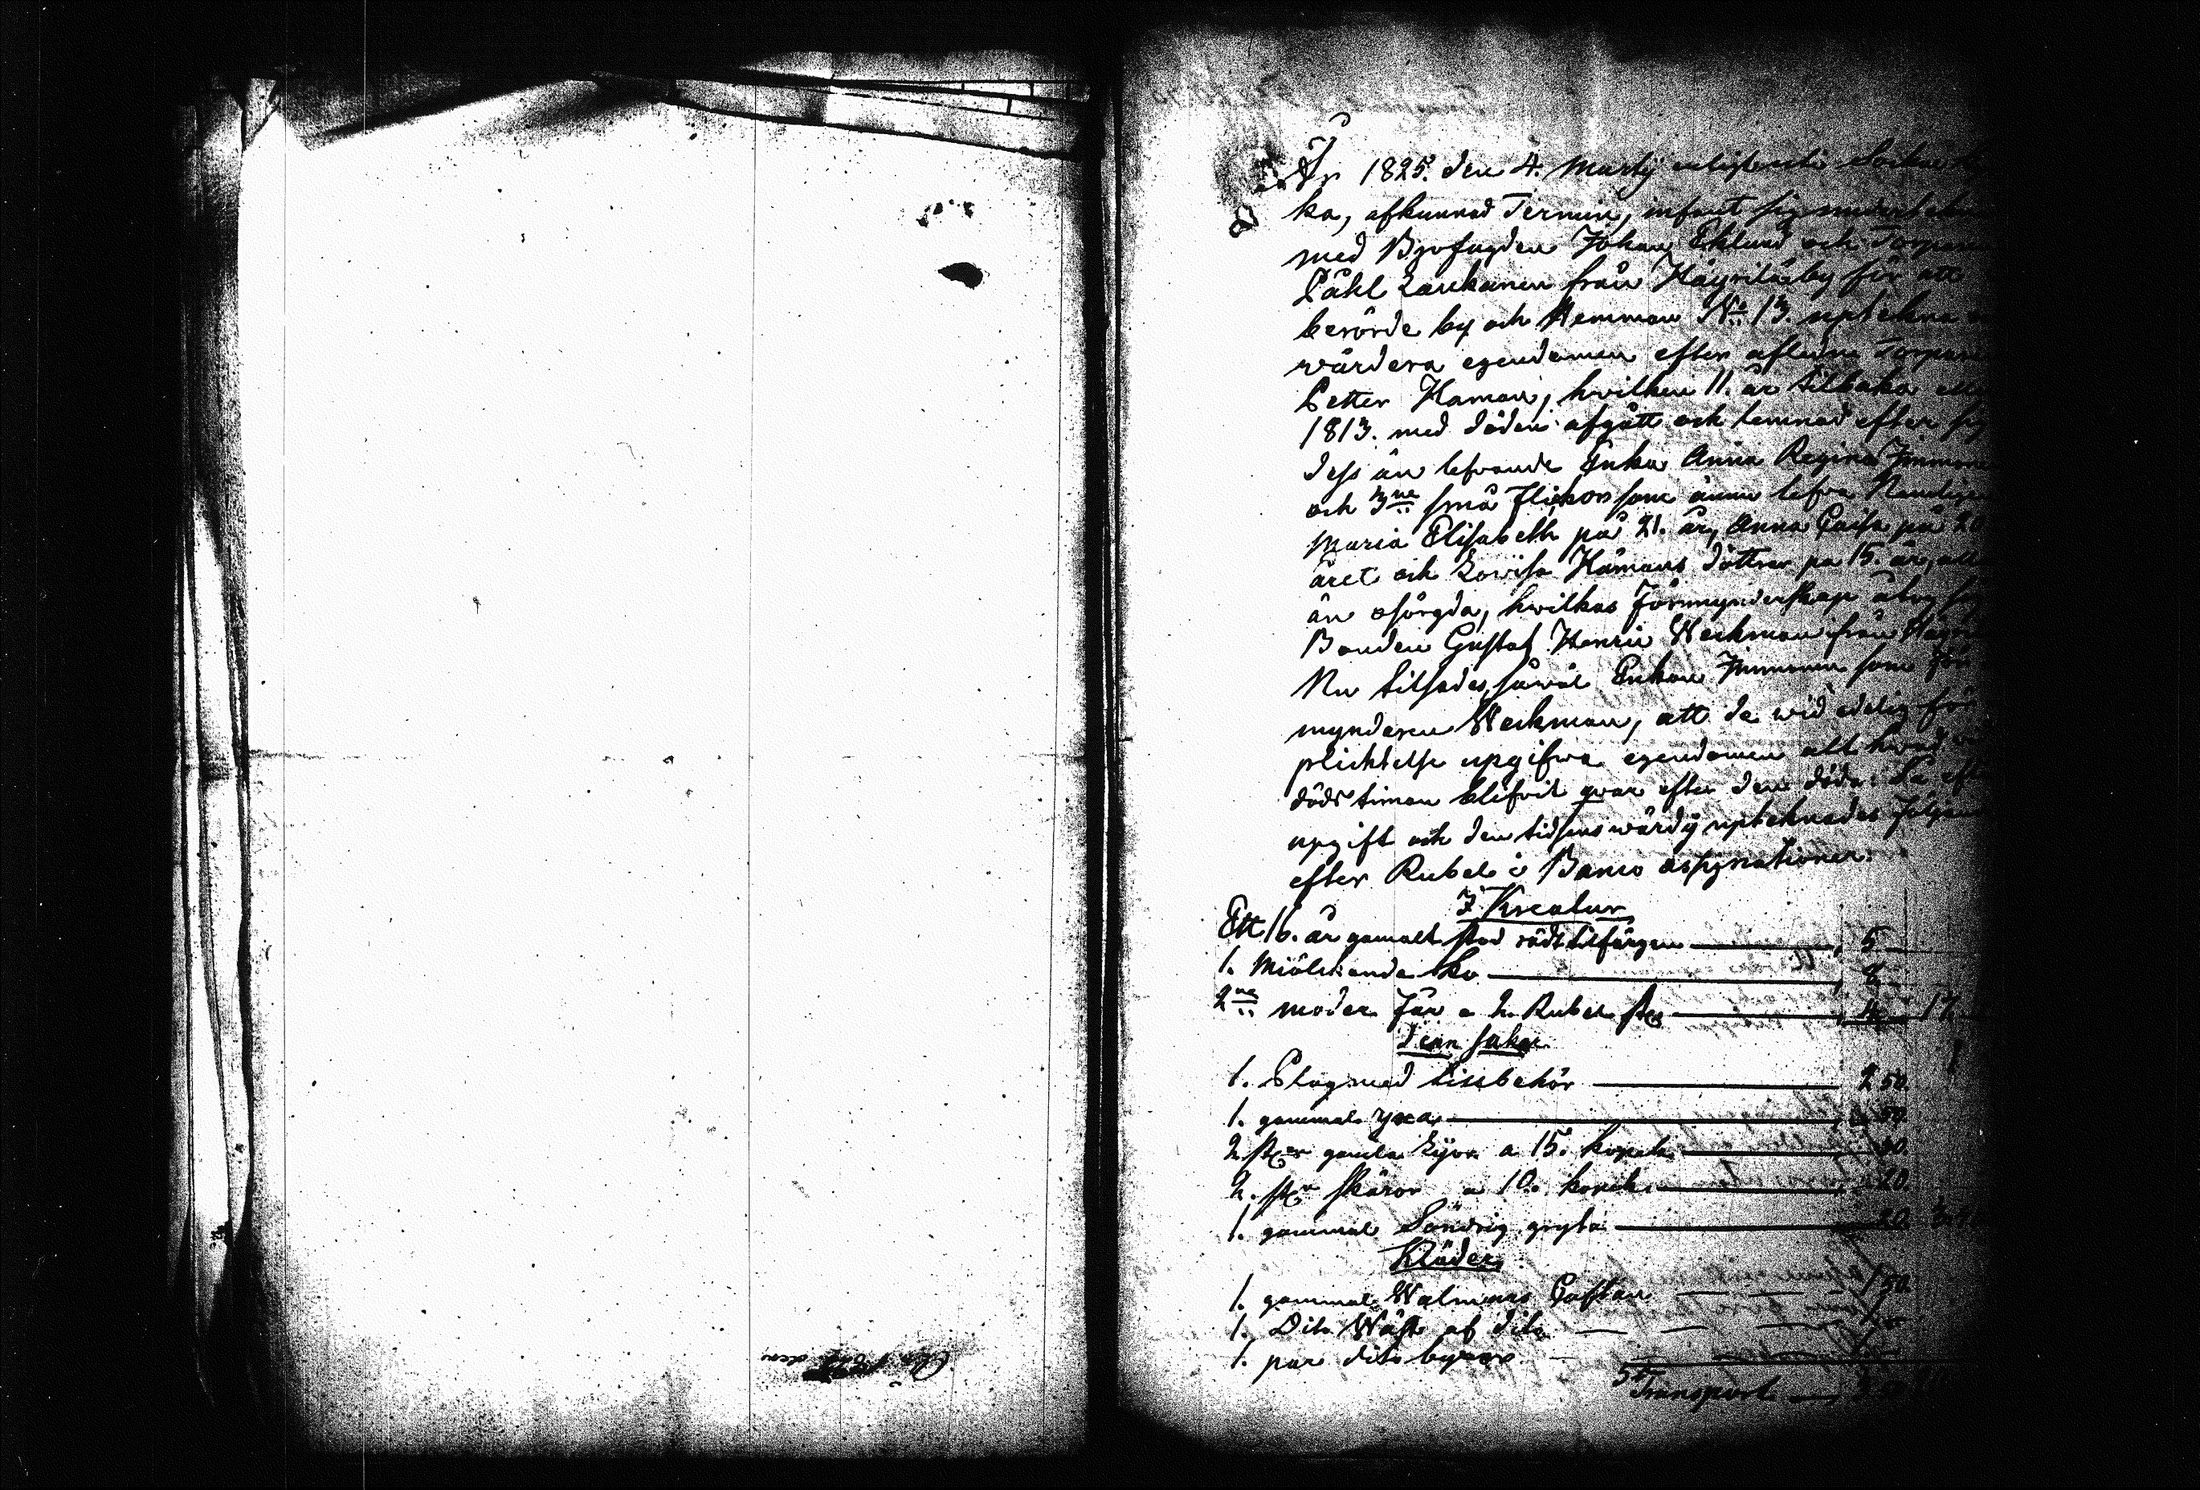 År 1825. den 4. Martij enligt uti Sockne
ka, afkunnad Termin, infant sig undertekna
med Byefogden Johan Eklund och Torparen
Påhl Laukanen från Häyrilä by för att
berörde by och Hemman No 13. uptekna
wärdera egendomen efter aflidne Torparen
Petter Haman, hwilken 11. år tilbaka
1813. med döden afgått och lemnad efter sig
dess än lefvande Enka Anna Regina Immone
och 3ne små Flickor som ännu lefva Nemligen
Maria Elisabeth på 21. år, Anna Caisa på 20
året och Lovisa Hamans döttrar på 15. år, alla
än osörgda, hwilkas Förmynderskap åtog sig
Bonden Gustaf Henric Weckman från Häyri
Nu tilsades, såwäl Enkan Immonen som För
mynderen Weckman, att de wid edelig för
plicktelse upgifva egendomen allt hwad
döds timan blifvit qvar efter den döda. På
upgift och den tidsens wärdi uptehnades Följan
efter Rubel i Banco assignationer.
I Kreatur
Ett 16. år gamalt stod rödt tilfärgen 5
1. Miölckande Ko 8
2ne moder Får a 2. Rubel st 4 17
Jern saker
1. Plog med tillbehör 2 50.
1. gammal yxa 50.
2. st gamla Lijor a 15. kopek 30.
2. st Skäror a 10. kopek 20.
1. gammal Söndrig gryta 20.
Kläder
1. gammal Walmars Caftan 1 50.
1. Dito Wäst af dito
1. par dito byxor
Transport